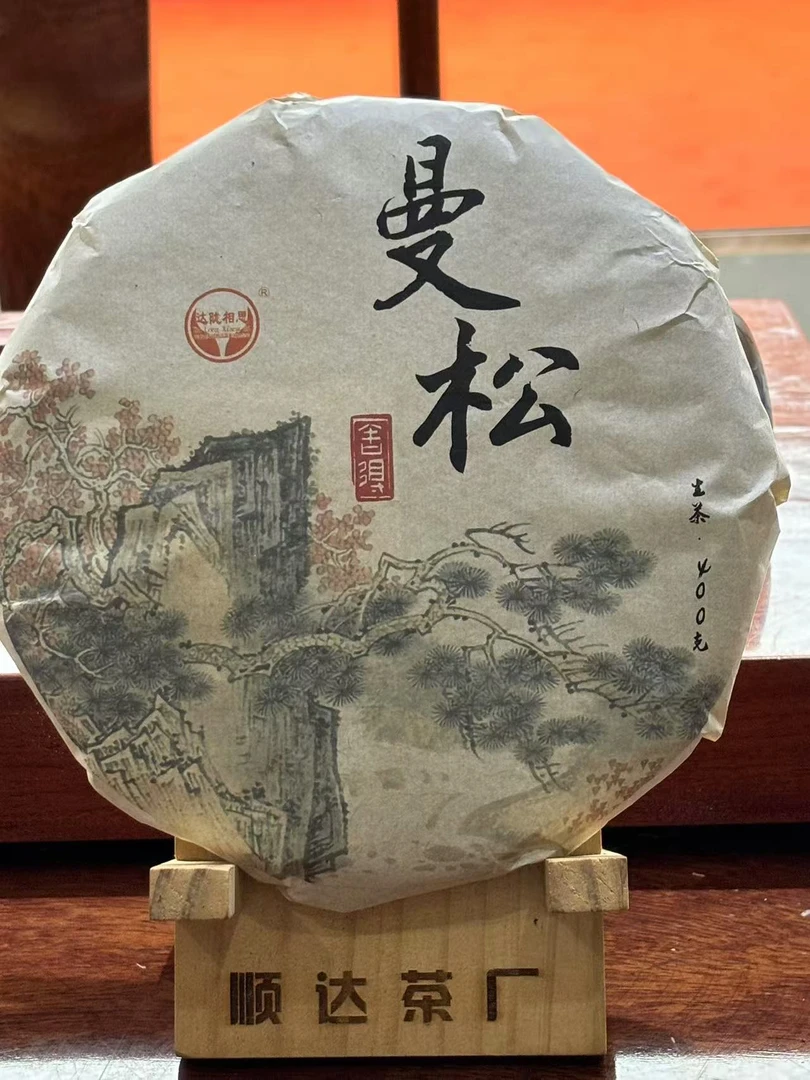 曼松
®
达陇相思
Long Xiang
舍得
生茶·400克
顺达茶厂